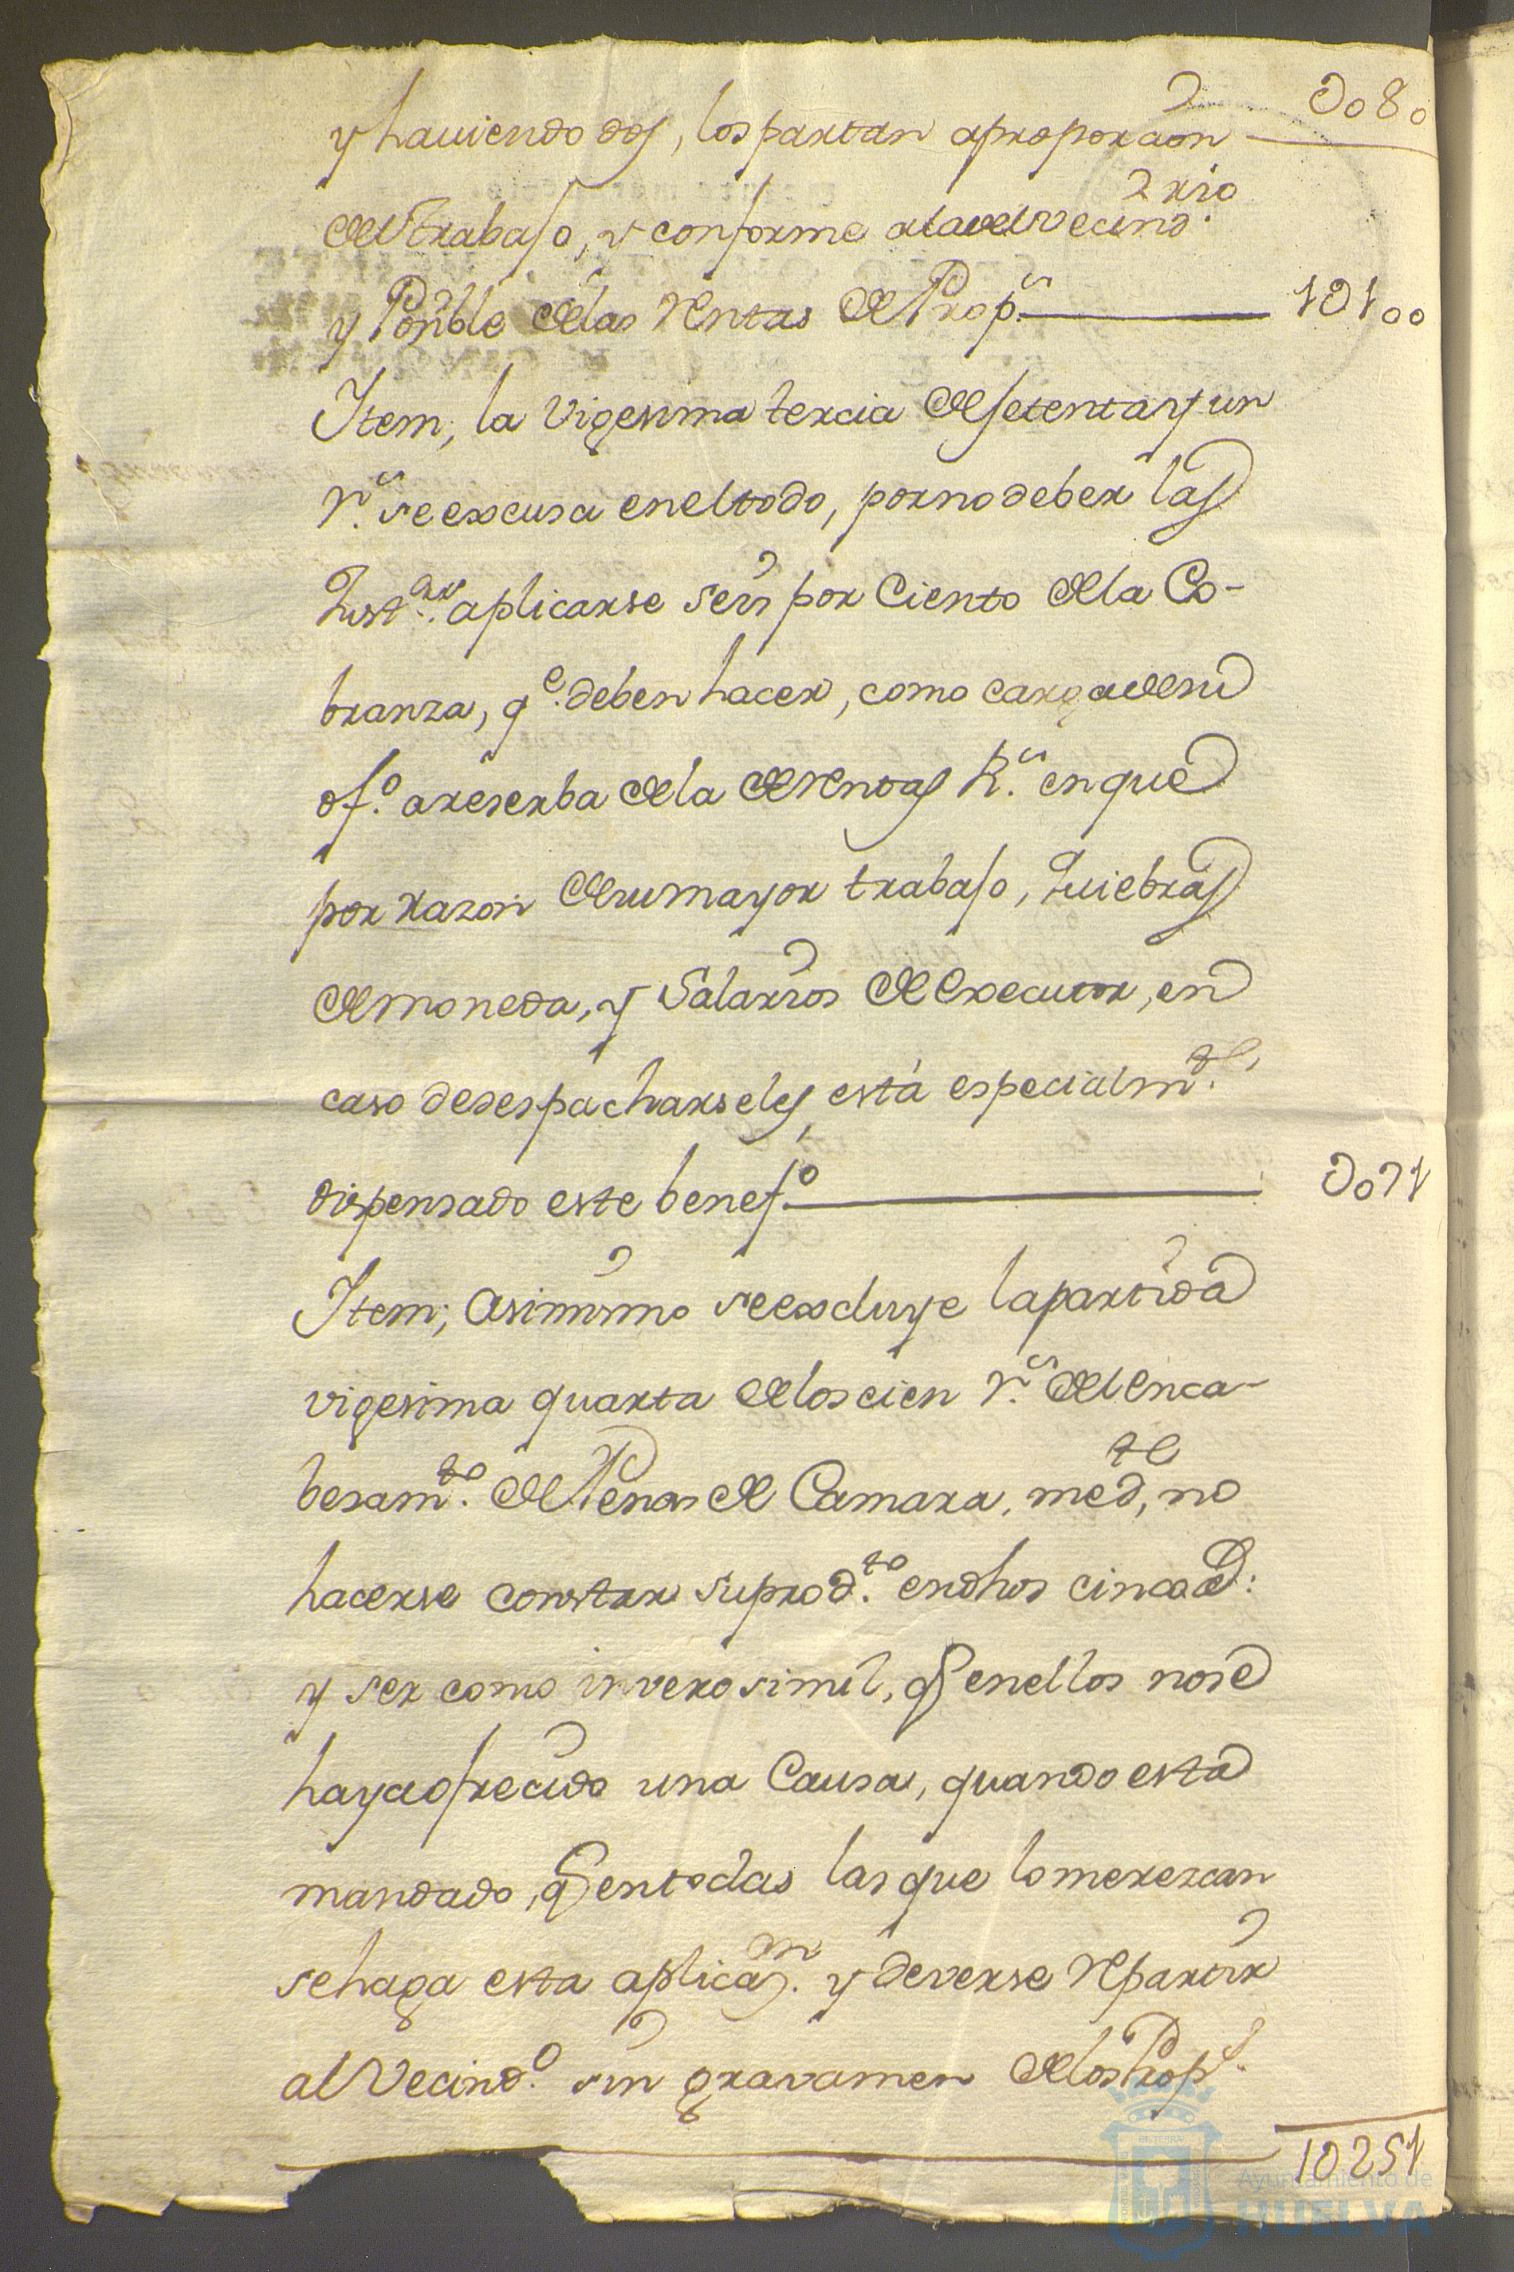 y haviendo dos, los partan a proporcion — D080
del trabajo, y conforme a la del Vecind.rio
y Posible de las Rentas de Prop.s — 1D100
Item, la Vigesima tercia de setenta y un
r.s se excusa en el todo, por no deber las
Just.as aplicarse seis por Ciento de la Co-
branza, q.e deben hacer, como carga de su
of.o a reserba de la de Rentas R.s en que
por razon de su mayor trabajo, Quiebras
de moneda, y Salarios de Executor, en
caso de despacharseles, está especialm.te
dispensado este benef.o — D071
Item; asimismo se excluye la partida
vigesima quarta de los cien r.s del Enca-
besam.to de Penas de Camara, med.te no
hacerse constar su prod.to en dhos cinco a.s:
y ser como inverosimil, q.e en ellos no se
haya ofrecido una Causa, quando está
mandado, q.e en todas las que lo merezcan
se haga esta aplicaz.on y deverse repartir
al Vecind.o sin gravamen de los Prop.s
1D251
Ayuntamiento de
HUELVA